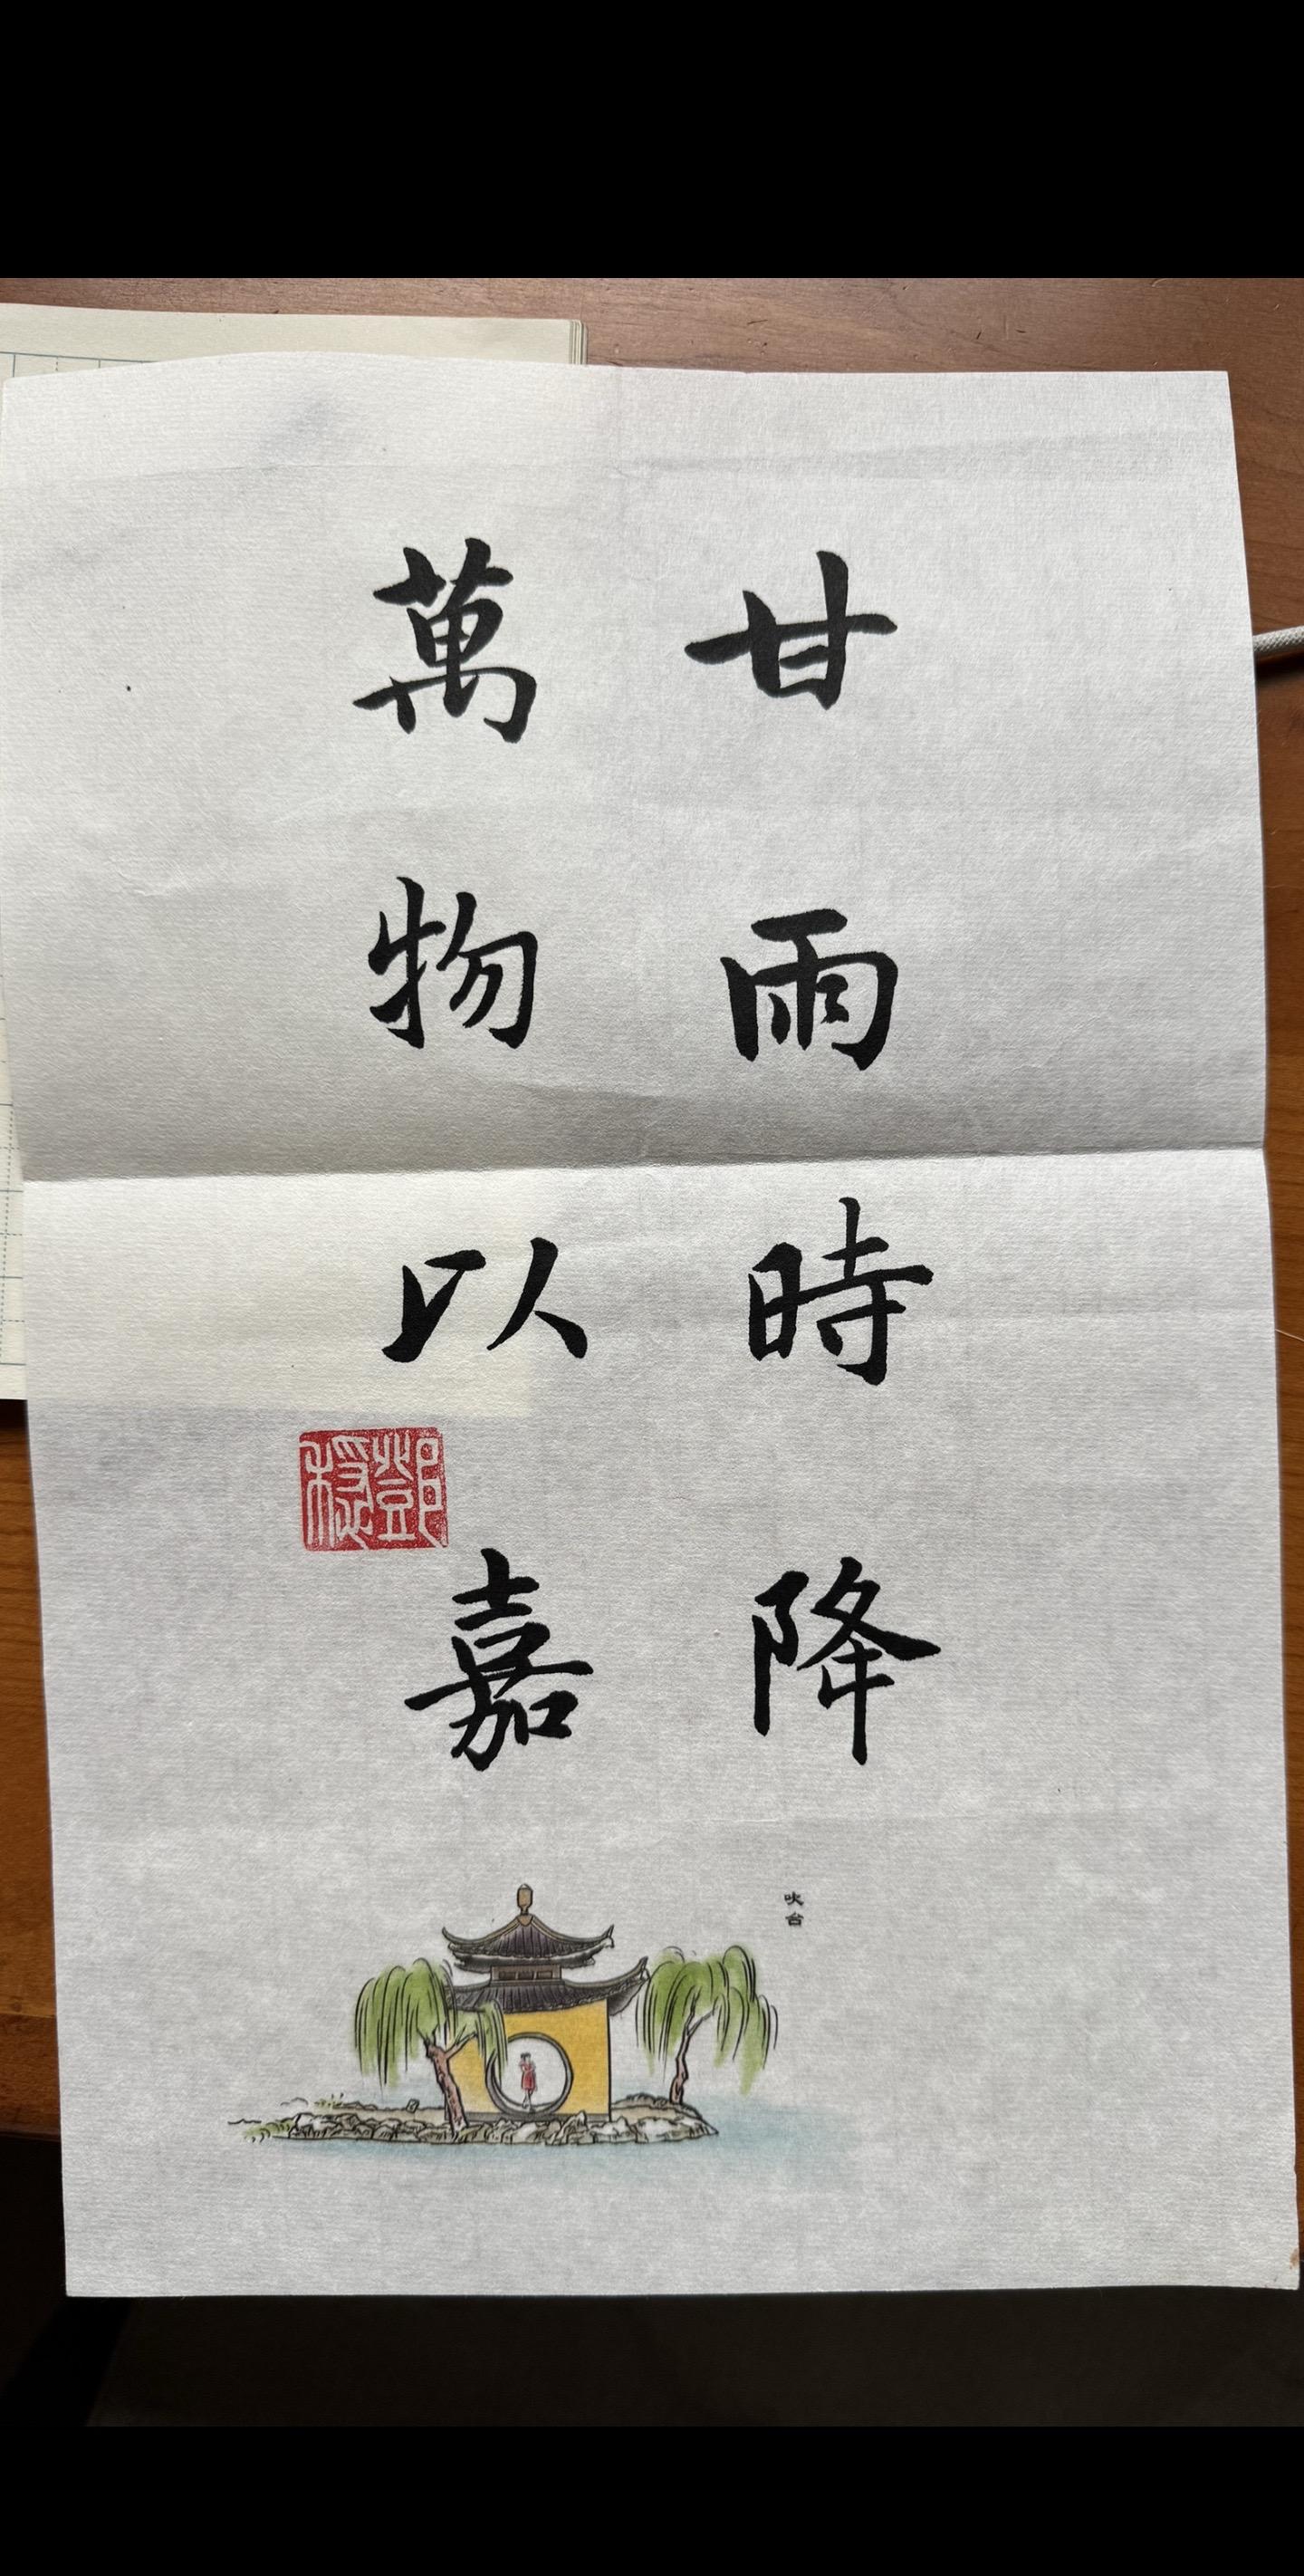 甘雨時降
萬物以嘉
鄧稳
吹台